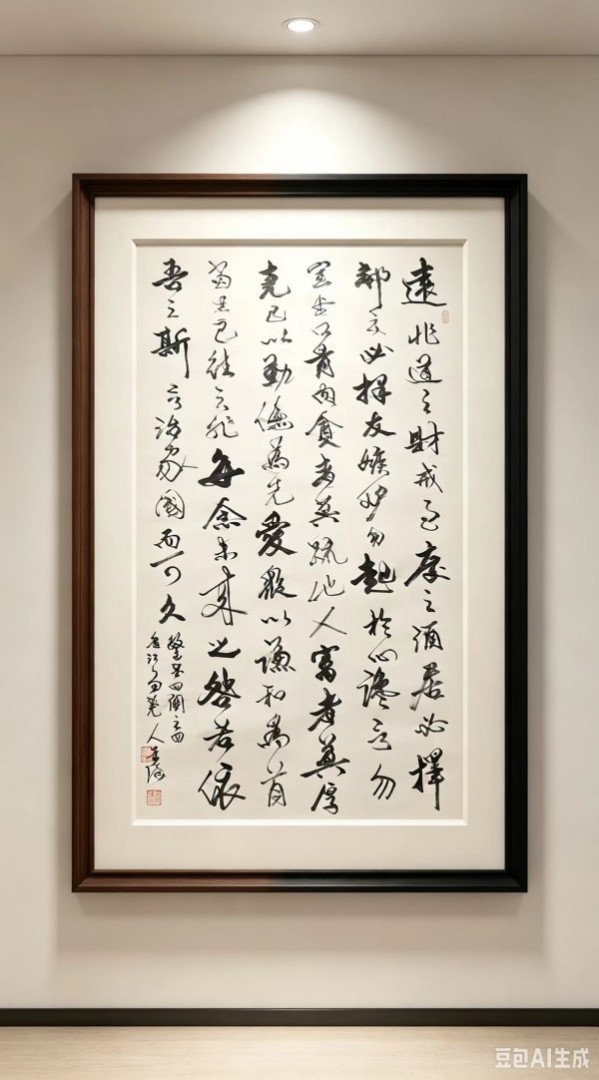 遠非道之財戒過度之酒居必擇
鄰交必擇友嫉妒勿起於心讒言勿
宣於口骨肉貧者莫疏他人富者莫厚
克己以勤儉為先愛眾以謙和為首
常思已往之非每念未來之咎若依
吾之斯言治家國而可久
豆包AI生成